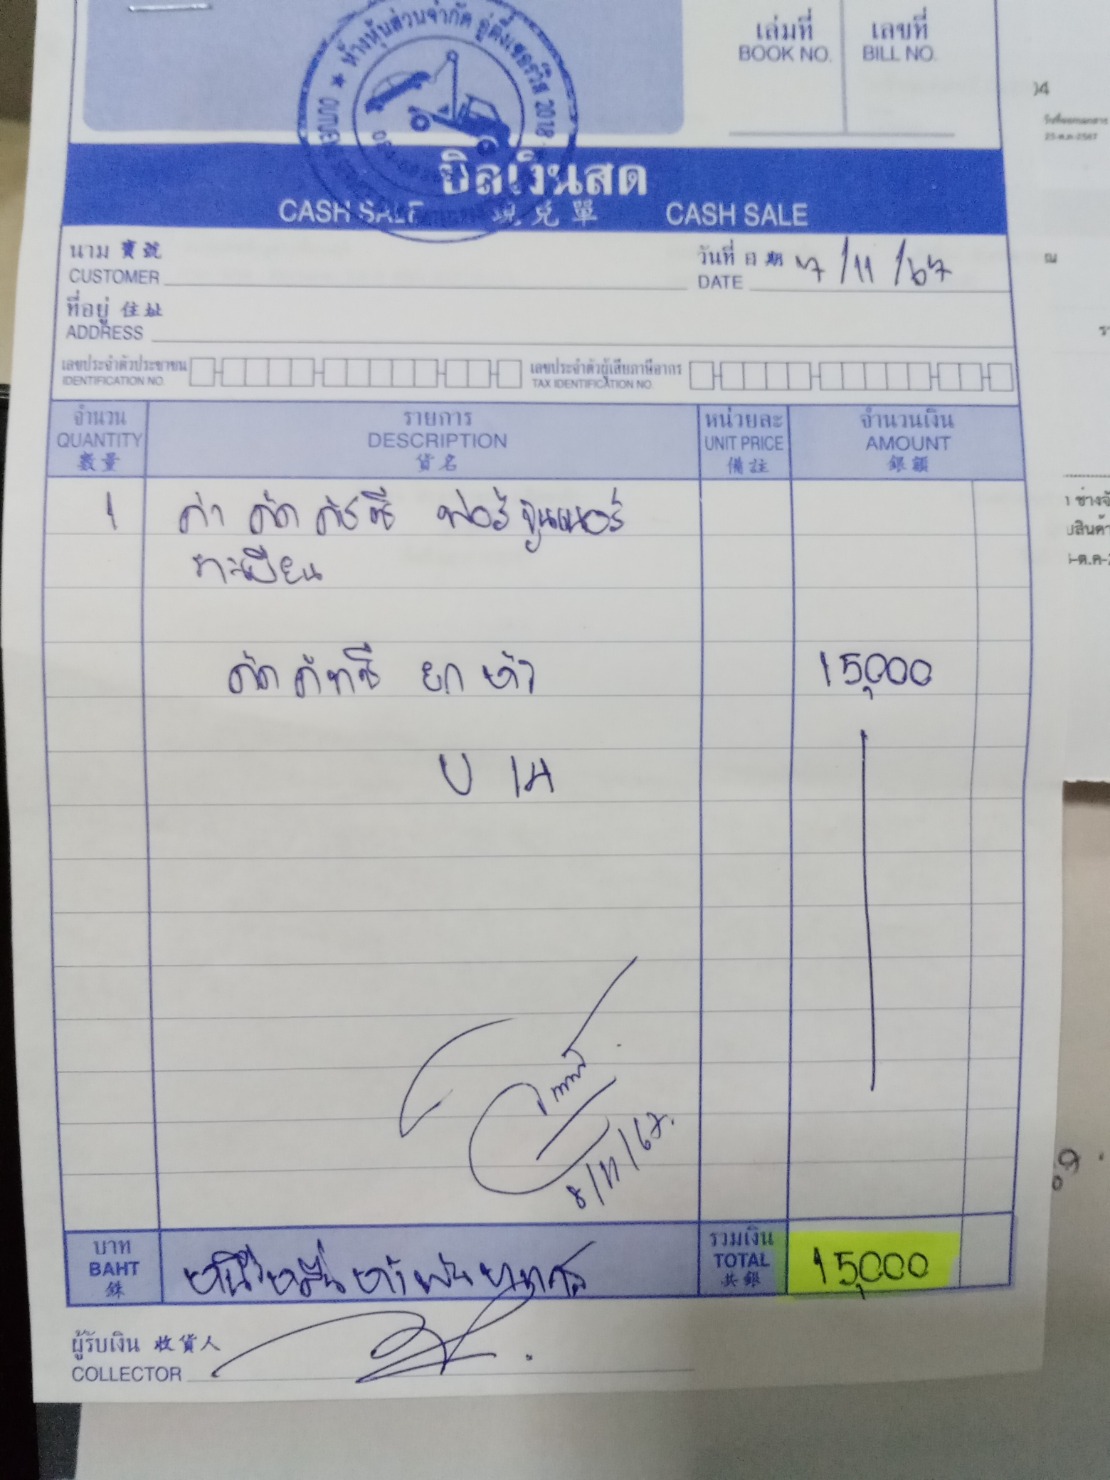 ห้างหุ้นส่วนจำกัด อู่ดี้ 2018
เล่มที่ เลขที่
BOOK NO. BILL NO.
บิลเงินสด
CASH SALE 現兌單 CASH SALE
นาม 寶號 วันที่ 日期 7/11/67
CUSTOMER DATE
ที่อยู่ 住址
ADDRESS
เลขประจำตัวประชาชน เลขประจำตัวผู้เสียภาษีอากร
IDENTIFICATION NO. TAX IDENTIFICATION NO.
จำนวน รายการ หน่วยละ จำนวนเงิน
QUANTITY DESCRIPTION UNIT PRICE AMOUNT
數量 貨名 備註 銀額
1 ค่า ดัด คัชซี ฟอร์จูนเนอร์
ทะเบียน
ดัด คัทซี ยก หัว 15,000
8/11/67.
บาท รวมเงิน
BAHT หนึ่งหมื่นห้าพันบาท TOTAL 15,000
銖 共銀
ผู้รับเงิน 收貨人
COLLECTOR
25-ต.ค-2567